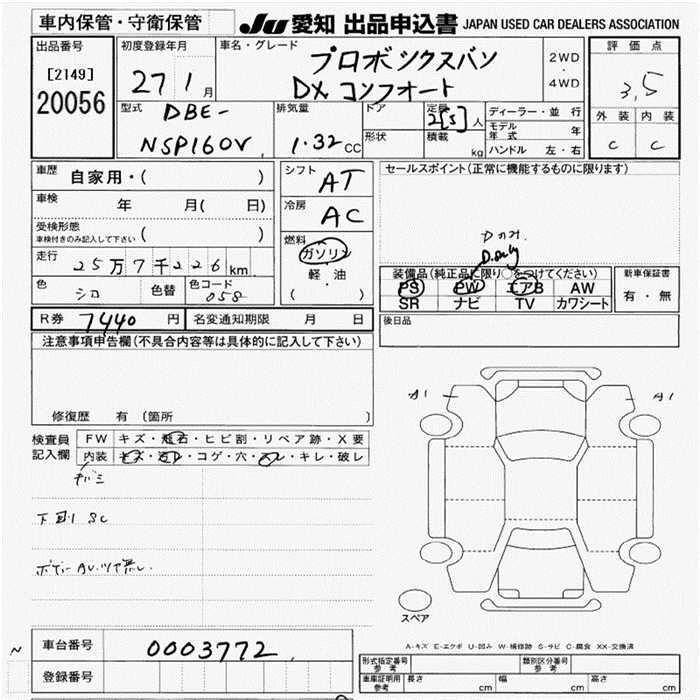 車内保管・守衛保管 JU 愛知 出品申込書 JAPAN USED CAR DEALERS ASSOCIATION
出品番号 初度登録年月 車名・グレード 評価点
[2149] 27 1 月 プロボックスバン 2WD ・ 4WD 3.5
20056 DXコンフォート 外装 内装
型式 DBE- 排気量 ドア 定員 2[5] 人 ディーラー・並行 C C
NSP160V 1.32 CC 形状 積載 kg モデル年式 年
ハンドル 左・右
車歴 自家用・( ) シフト AT セールスポイント(正常に機能するものに限ります)
車検 年 月( 日) 冷房 AC
受検形態 車検付きのみ記入して下さい ( ) 燃料 Dのみ
走行 25万7千226km ガソリン D.only
軽・油 装備品(純正品に限り○をつけてください) 新車保証書
色 シロ 色替 色コード 058 ( ・ ) PS PW エアB AW 有・無
SR ナビ TV カワシート
R券 7440 円 名変通知期限 月 日 後日品
注意事項申告欄(不具合内容等は具体的に記入して下さい)
A1 A1
修復歴 有 〔箇所 〕
検査員記入欄 FW キズ・飛石・ヒビ割・リペア跡・X要
内装 キズ・汚レ・コゲ・穴・スレ・キレ・破レ
下廻り SC
ボデーAU.ツヤ無し.
スペア
車台番号 0003772 A-キズ E-エクボ U-凹み W-補修跡 S-サビ C-腐食 XX-交換済
登録番号 形式指定番号 参考 類別区分番号 参考
車庫証明用 参考 長さ cm 幅 cm 高さ cm